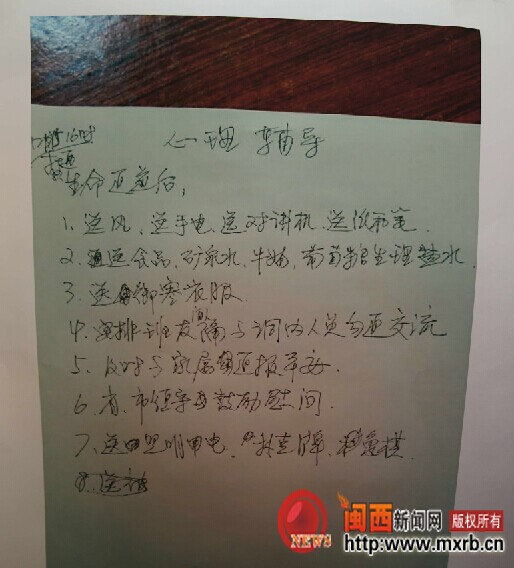 心理辅导
生命通道后,
1. 送风、送手电、送对讲机、送纸和笔.
2. 送食品、矿泉水、牛奶、葡萄糖生理盐水
3. 送御寒衣服
4. 安排班友隔与洞内人员勾通交流
5. 及时与家属通报平安.
6. 省、市领导鼓励慰问.
7. 送照明用电.
8.
NEWS
闽西新闻网 版权所有
http:www.mxrb.cn